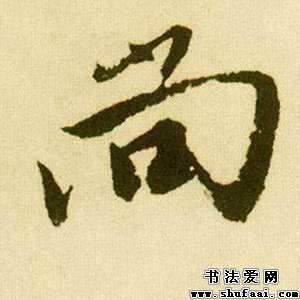 尚
书法爱网
www.shufaai.com